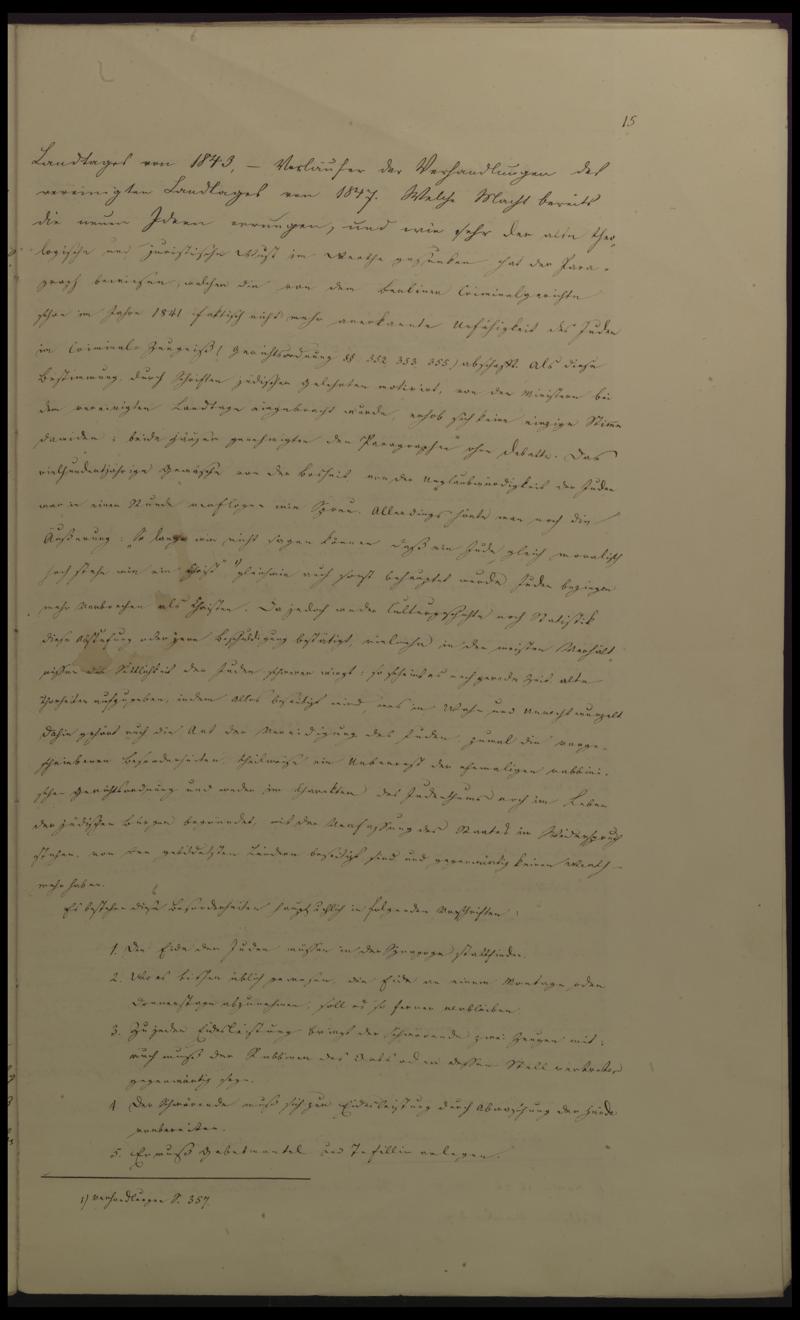 15
Landtages von 1843, — Vorläufer der Verhandlungen des
vereinigten Landtages von 1847. Welche Macht bereits
die neuen Ideen errungen, und wie sehr der alte theo-
logische und juristische Wust im Werthe gesunken hat der Para-
graph bewiesen, welcher die von dem Berliner Criminalgerichte
schon im Jahre 1841 faktisch nicht mehr anerkannte Unfähigkeit des Juden
im Criminal-Zeugniß (Gerichtsordnung §§ 352 353 355) abschafft. Als diese
Bestimmung, durch Schriften jüdischer Gelehrten motivirt, von den Ministern bei
dem vereinigten Landtage eingebracht wurde, erhob sich keine einzige Stimme
dawider; beide Häuser genehmigten den Paragraphen ohne Debatte. Das
vielhundertjährige Gewäsche von der Bosheit von der Unglaubwürdigkeit der Juden
war in einer Stunde verflogen wie Spreu. Allerdings hörte man noch die
Äußerung: "So lange wir nicht sagen können daß ein Jude gleich moralisch
hoch stehe wie ein Christ" 1) gleichwie auch sonst behauptet wurde Juden begingen
mehr Verbrechen als Christen. Da jedoch weder Culturgeschichte noch Statistik
diese Abstufung oder jene Beschuldigung bestätigt, vielmehr in den meisten Verhält-
nissen die Sittlichkeit der Juden schwerer wiegt: so scheint es nachgerade Zeit alte
Thorheiten aufzugeben, indem Alles beseitigt wird, was in Wahn und Unrecht wurzelt
Dahin gehört auch die Art der Vereidigung des Juden, zumal die vorge-
schriebenen Besonderheiten, theilweise ein Ueberrest der ehemaligen rabbini-
schen Gerichtsordnung und weder im Charakter des Judenthums noch im Leben
der jüdischen Bürger begründet, mit der Verfassung des Staates in Widerspruch
stehen, von den gebildetsten Ländern beseitigt sind und gegenwärtig keinen Werth
mehr haben.
Es bestehen diese Besonderheiten hauptsächlich in folgenden Vorschriften:
1. Die Eide der Juden müssen in der Synagoge stattfinden.
2. Wo es bisher üblich gewesen, die Eide an einem Montage oder
Donnerstage abzunehmen, soll es so ferner verbleiben
3. Zu jeder Eidesleistung bringt der Schwörende zwei Zeugen mit;
auch muß der Rabbiner des Orts oder dessen Stellvertreter
gegenwärtig seyn.
4. Der Schwörende muß sich zur Eidesleistung durch Abwaschung der Hände
vorbereiten.
5. Er muß Gebetmantel und Tefillin anlegen.
1) Verhandlungen S. 357.